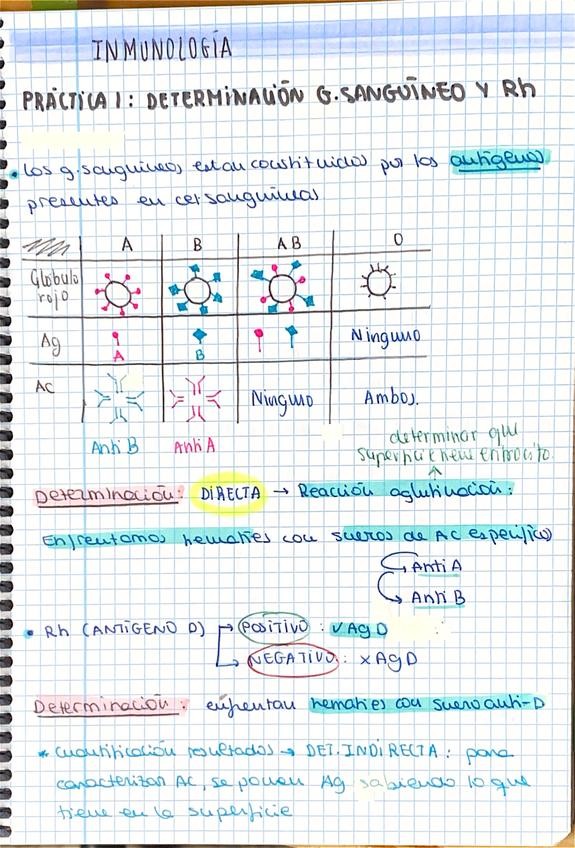 INMUNOLOGÍA
PRÁCTICA 1: DETERMINACIÓN G. SANGUÍNEO Y Rh
• Los g. sanguíneos estan constituidos por los antígenos
presentes en cel sanguíneas
A B AB O
Glóbulo
rojo
Ag A B Ninguno
AC Ninguno Ambos.
Anti B Anti A
determinar que
superficie tiene eritrocito.
Determinación: DIRECTA → Reacción aglutinación:
Enfrentamos hematíes con sueros de AC específico
Anti A
Anti B
• Rh (ANTÍGENO D) → POSITIVO: ✓AgD
→ NEGATIVO: xAgD
Determinación: enfrentan hematíes con suero anti-D
* Cuantificación resultados → DET. INDIRECTA: para
caracterizar AC, se ponen Ag sabiendo lo que
tiene en la superficie